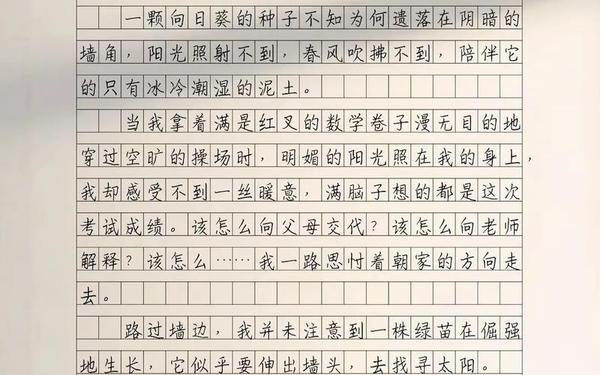 一颗向日葵的种子不知为何遗落在阴暗的
墙角，阳光照射不到，春风吹拂不到，陪伴它
的只有冰冷潮湿的泥土。
当我拿着满是红叉的数学卷子漫无目的地
穿过空旷的操场时，明媚的阳光照在我的身上，
我却感受不到一丝暖意，满脑子想的都是这次
考试成绩。该怎么向父母交代？该怎么向老师
解释？该怎么……我一路思忖着朝家的方向走
去。
路过墙边，我并未注意到一株绿苗在倔强
地生长，它似乎要伸出墙头，去找寻太阳。